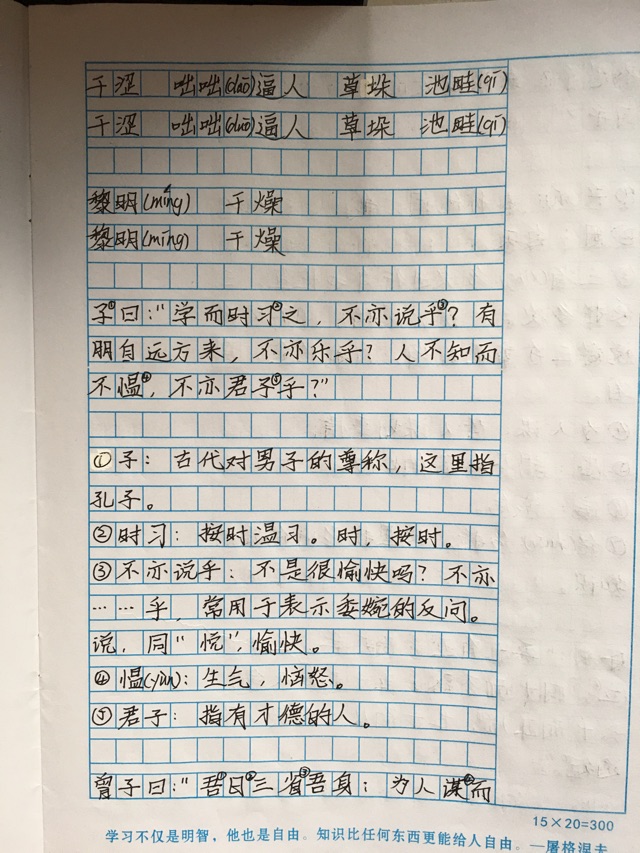 干涩 咄咄(duō)逼人 草垛 池畦(qí)
干涩 咄咄(duō)逼人 草垛 池畦(qí)
黎明(míng) 干燥
黎明(míng) 干燥
子①曰:“学而时习②之,不亦说乎③?有
朋自远方来,不亦乐乎?人不知而
不愠④,不亦君子⑤乎?”
①子:古代对男子的尊称,这里指
孔子。
②时习:按时温习。时,按时。
③不亦说乎:不是很愉快吗?不亦
……乎,常用于表示委婉的反问。
说,同“悦”,愉快。
④愠(yùn):生气,恼怒。
⑤君子:指有才德的人。
曾子曰:“吾①日②三省③吾身:为人谋④而
15×20=300
学习不仅是明智,他也是自由。知识比任何东西更能给人自由。—屠格涅夫